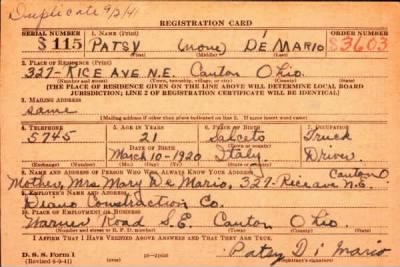 Duplicate 9/3/41
REGISTRATION CARD
SERIAL NUMBER 1. NAME (Print) ORDER NUMBER
S 115 PATSY (none) DE MARIO S3603
(First) (Middle) (Last)
2. PLACE OF RESIDENCE (Print)
327-RICE AVE N.E. Canton Ohio.
(Number and street) (Town, township, village, or city) (County) (State)
[THE PLACE OF RESIDENCE GIVEN ON THE LINE ABOVE WILL DETERMINE LOCAL BOARD
JURISDICTION; LINE 2 OF REGISTRATION CERTIFICATE WILL BE IDENTICAL.]
3. MAILING ADDRESS
same
[Mailing address if other than place indicated on line 2. If same, insert word same]
4. TELEPHONE 5. AGE IN YEARS 6. PLACE OF BIRTH 7. OCCUPATION
5745 21 Salceto Truck
DATE OF BIRTH
March 10-1920 Italy Driver
(Exchange) (Number) (Mo.) (Day) (Yr.) (State or country)
8. NAME AND ADDRESS OF PERSON WHO WILL ALWAYS KNOW YOUR ADDRESS Canton O
Mother, Mrs Mary De Mario, 327-Rice ave N.E.
9. EMPLOYER'S NAME
Diano Construction Co.
10. PLACE OF EMPLOYMENT OR BUSINESS
Warner Road S.E. Canton Ohio.
(Number and street or R. F. D. number) (Town) (County) (State)
I AFFIRM THAT I HAVE VERIFIED ABOVE ANSWERS AND THAT THEY ARE TRUE.
D. S. S. Form 1
(Revised 6-9-41) Patsy Di Mario
(Registrant's signature)